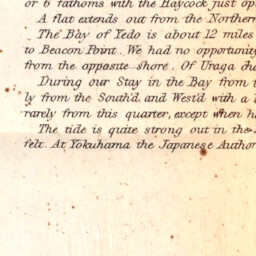 or 6 fathoms with the Haycock just op
A flat extends out from the Northern
The Bay of Yedo is about 12 miles
to Beacon Point. We had no opportunity
from the opposite shore. Of Uraga cha
During our Stay in the Bay from t
ly from the South'd. and West'd with a
rarely from this quarter, except when h
The tide is quite strong out in the
felt. At Yokuhama the Japanese Author